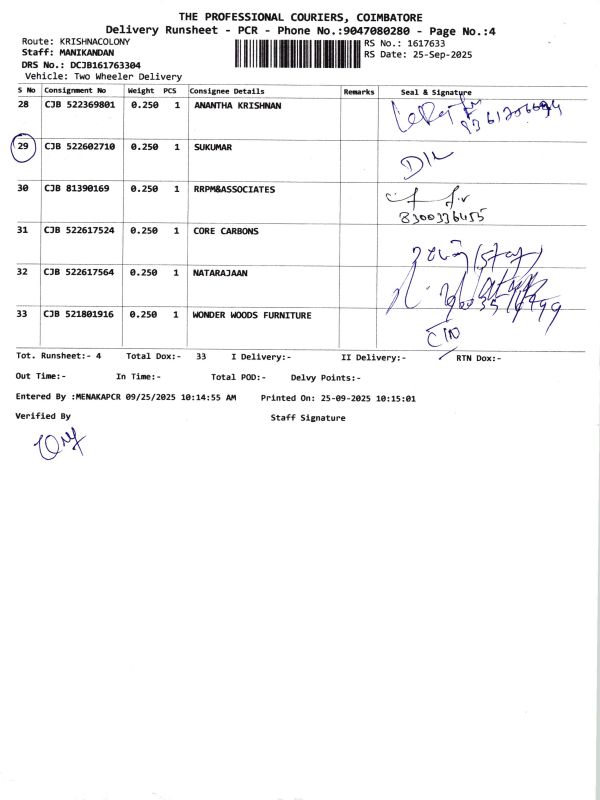 THE PROFESSIONAL COURIERS, COIMBATORE
Delivery Runsheet - PCR - Phone No.:9047080280 - Page No.:4
Route: KRISHNACOLONY
RS No.: 1617633
Staff: MANIKANDAN
RS Date: 25-Sep-2025
DRS No.: DCJB161763304
Vehicle: Two Wheeler Delivery
S No Consignment No Weight PCS Consignee Details Remarks Seal & Signature
28 CJB 522369801 0.250 1 ANANTHA KRISHNAN
29 CJB 522602710 0.250 1 SUKUMAR
D/L
30 CJB 81390169 0.250 1 RRPM&ASSOCIATES
8300336455
31 CJB 522617524 0.250 1 CORE CARBONS
32 CJB 522617564 0.250 1 NATARAJAAN
33 CJB 521801916 0.250 1 WONDER WOODS FURNITURE
Tot. Runsheet:- 4 Total Dox:- 33 I Delivery:- II Delivery:- RTN Dox:-
Out Time:- In Time:- Total POD:- Delvy Points:-
Entered By :MENAKAPCR 09/25/2025 10:14:55 AM Printed On: 25-09-2025 10:15:01
Verified By Staff Signature